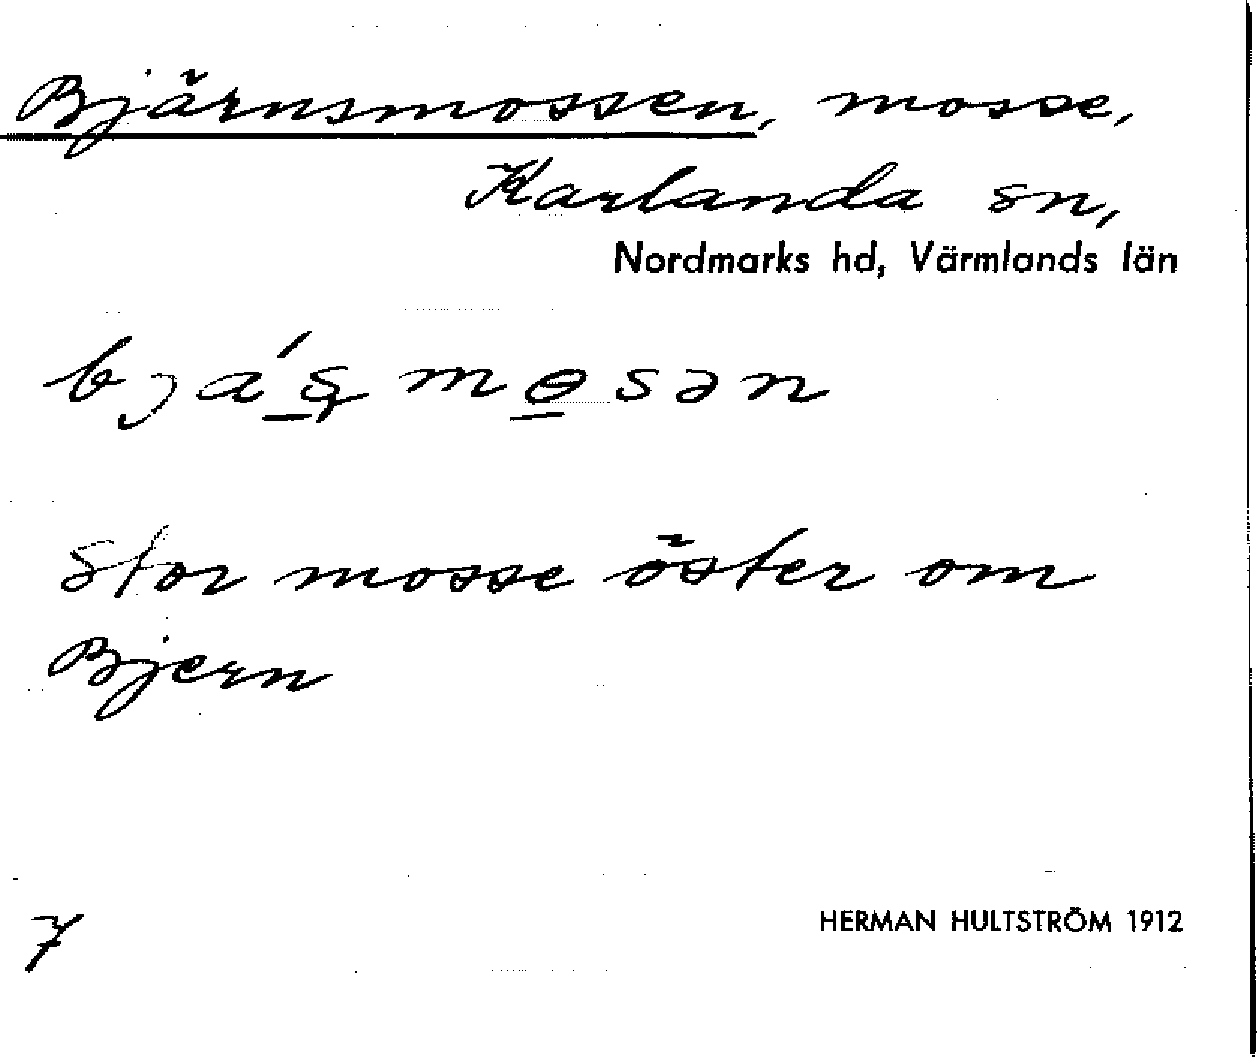 Bjärnsmossen, mosse,
Karlanda sn,
Nordmarks hd, Värmlands län
bjá´ʂmɵsən
Stor mosse öster om
Bjern
7
HERMAN HULTSTRÖM 1912